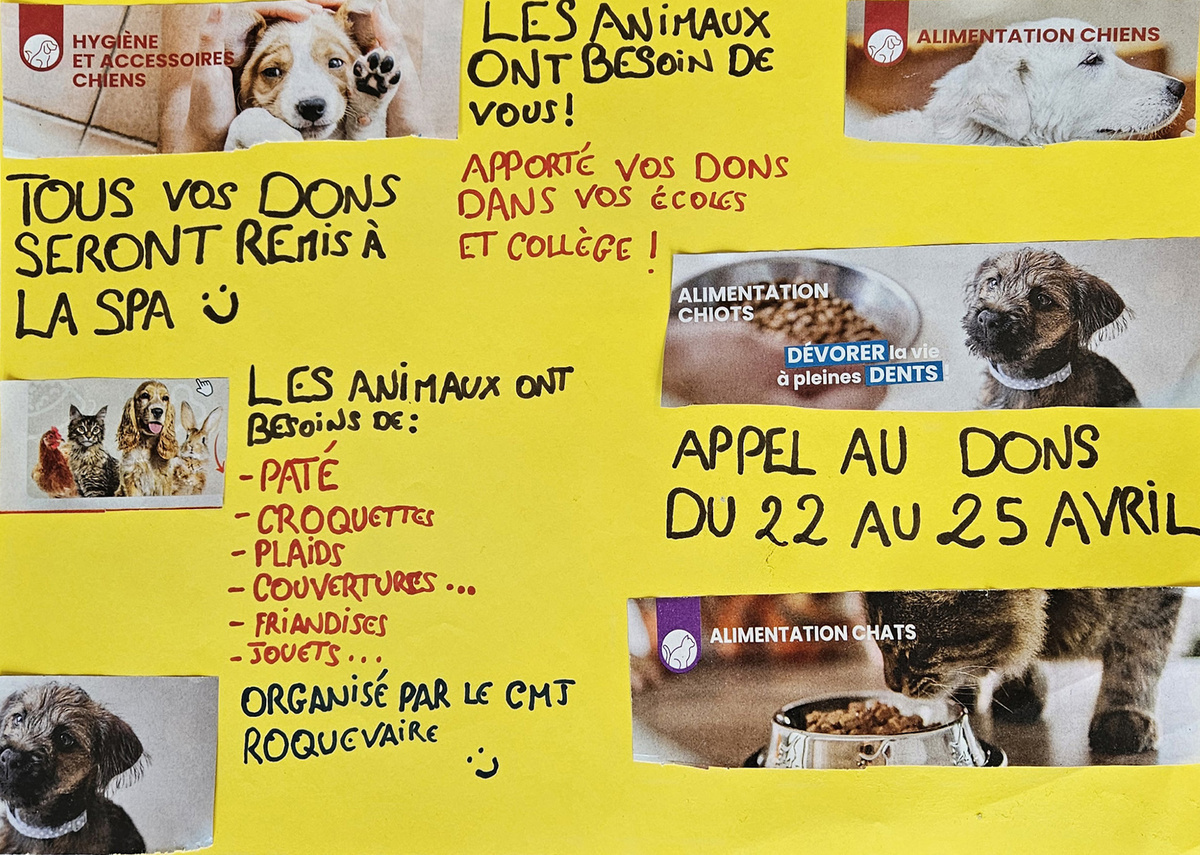 HYGIÈNE
ET ACCESSOIRES
CHIENS
LES ANIMAUX
ONT BESOIN DE
VOUS!
ALIMENTATION CHIENS
APPORTÉ VOS DONS
DANS VOS ÉCOLES
ET COLLÈGE !
TOUS VOS DONS
SERONT REMIS À
LA SPA
ALIMENTATION
CHIOTS
DÉVORER la vie
à pleines DENTS
LES ANIMAUX ONT
BESOINS DE:
- PATÉ
- CROQUETTES
- PLAIDS
- COUVERTURES ...
- FRIANDISES
- JOUETS ...
APPEL AU DONS
DU 22 AU 25 AVRIL
ALIMENTATION CHATS
ORGANISÉ PAR LE CMJ
ROQUEVAIRE